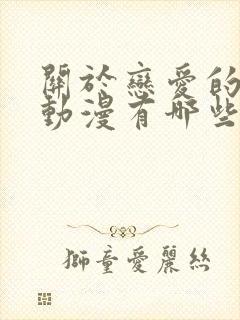 關於戀愛的
動漫有哪些
獅童愛麗絲